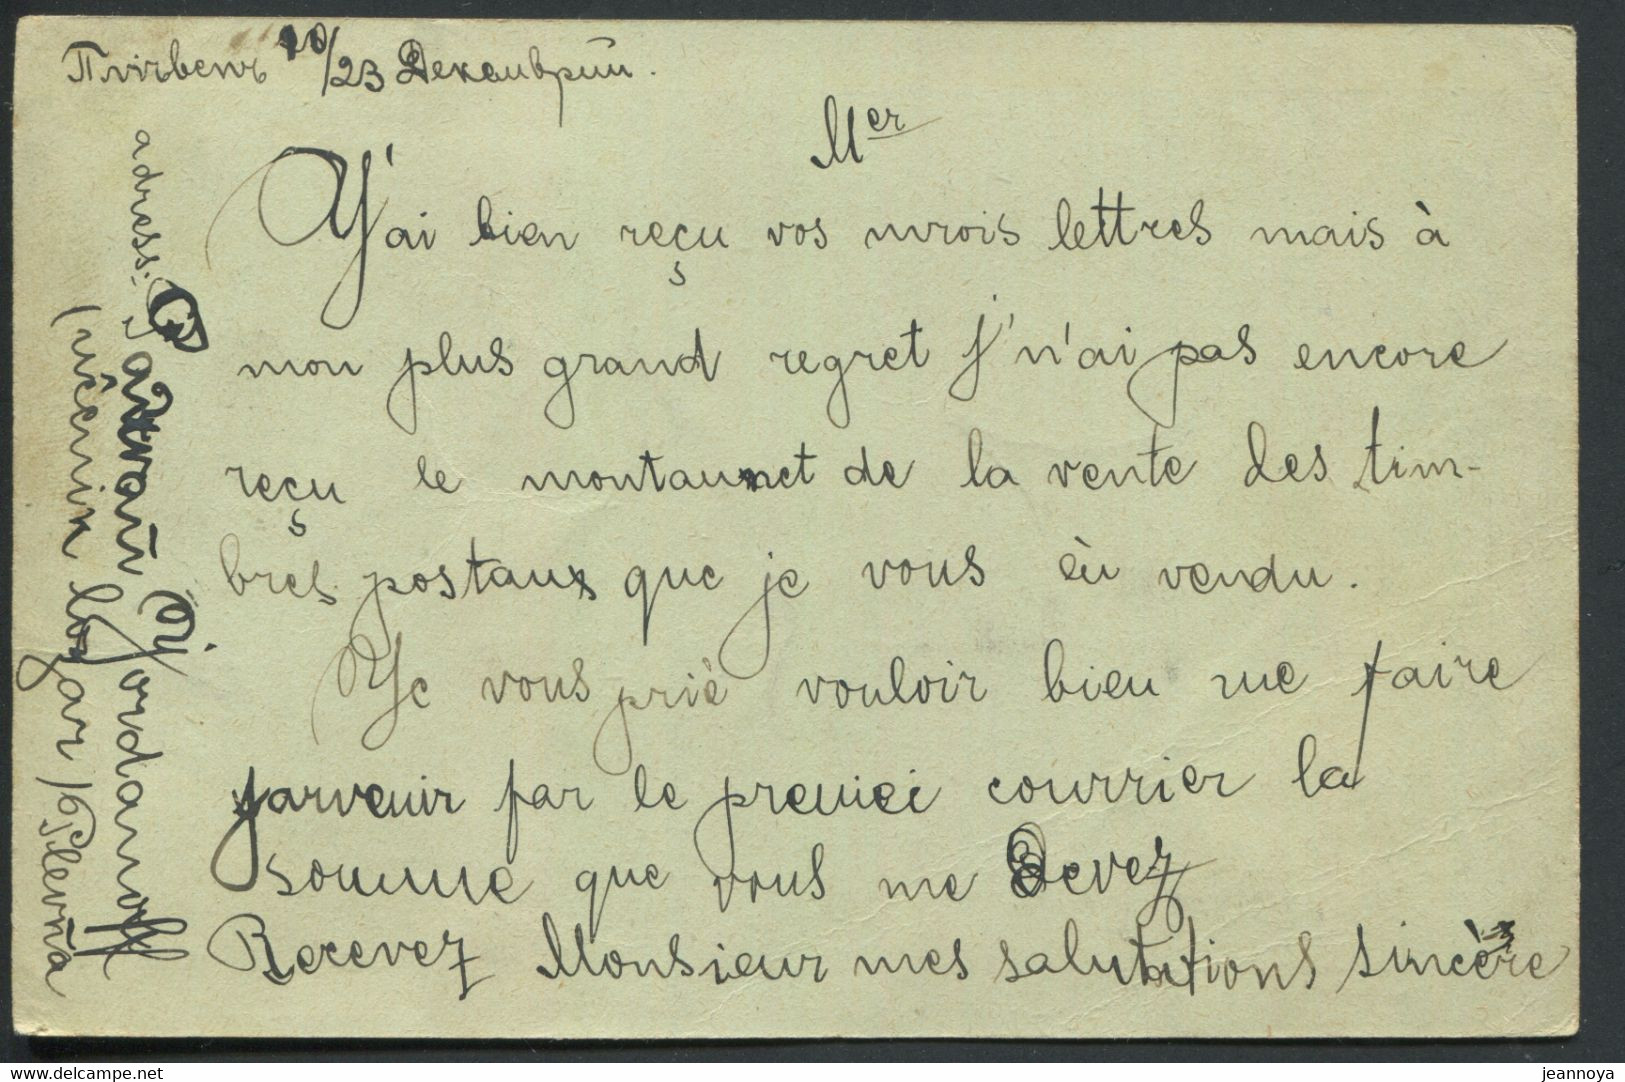 Плѣвенъ 10/23 Декемврий.
Mer
J'ai bien reçu vos trois lettres mais à
mon plus grand regret j'n'ai pas encore
reçu le montannet de la vente des tim-
bres postaux que je vous èu vendu.
Je vous priè vouloir bien me faire
parvenir par le premier courrier la
somme que vous me devez
Recevez Monsieur mes salutations sincère
adress:
Jordanoff
Plevna
www.delcampe.net
jeannoya